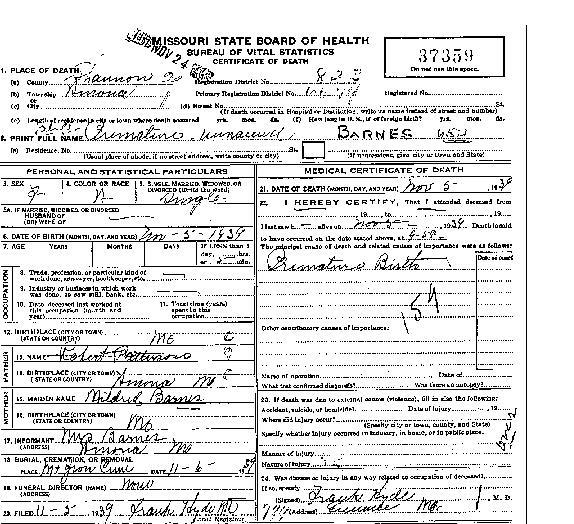 NOV 24
MISSOURI STATE BOARD OF HEALTH
BUREAU OF VITAL STATISTICS
CERTIFICATE OF DEATH
37359
Do not use this space.
1. PLACE OF DEATH
(a) County Shannon Co Registration District No. 823
(b) Township Primary Registration District No. Registered No.
(c) City (d) Street No. St.
(If death occurred in Hospital or Institution, write its name instead of street and number)
(e) Length of residence in city or town where death occurred yrs. mos. ds. (f) How long in U.S., if of foreign birth? yrs. mos. ds.
2. PRINT FULL NAME Premature unnamed BARNES
(a) Residence, No. St.
(Usual place of abode, if no street address, write county or city) (If nonresident, give city or town and State)
PERSONAL AND STATISTICAL PARTICULARS
3. SEX 4. COLOR OR RACE 5. SINGLE, MARRIED, WIDOWED, OR DIVORCED (write the word)
F W Single
5A. IF MARRIED, WIDOWED, OR DIVORCED
HUSBAND OF
(OR) WIFE OF
6. DATE OF BIRTH (MONTH, DAY, AND YEAR) Nov - 5 - 1939
7. AGE YEARS MONTHS DAYS If LESS than 1 day, hrs. or min.
OCCUPATION
8. Trade, profession, or particular kind of work done, as sawyer, bookkeeper, etc.
9. Industry or business in which work was done, as saw mill, bank, etc.
10. Date deceased last worked at this occupation (month and year) 11. Total time (years) spent in this occupation
12. BIRTHPLACE (CITY OR TOWN)
(STATE OR COUNTRY) Mo
FATHER
13. NAME Robert
14. BIRTHPLACE (CITY OR TOWN)
(STATE OR COUNTRY) Mo
MOTHER
15. MAIDEN NAME Mildred Barnes
16. BIRTHPLACE (CITY OR TOWN)
(STATE OR COUNTRY) Mo
17. INFORMANT Mrs Barnes
(ADDRESS) Mo
18. BURIAL, CREMATION, OR REMOVAL
PLACE DATE 11-6-
19. FUNERAL DIRECTOR (NAME) None
(ADDRESS)
20. FILED 11-5-1939 Frank Hyde MD
Local Registrar
MEDICAL CERTIFICATE OF DEATH
21. DATE OF DEATH (MONTH, DAY, AND YEAR) Nov 5- 1939
22. I HEREBY CERTIFY, That I attended deceased from
19 to 19
I last saw h alive on Nov 5- 1939 Death is said
to have occurred on the date stated above, at
The principal cause of death and related causes of importance were as follows:
Date of onset
Premature Birth
159
Other contributory causes of importance:
Name of operation Date of
What test confirmed diagnosis? Was there an autopsy?
23. If death was due to external causes (violence), fill in also the following:
Accident, suicide, or homicide? Date of injury , 19
Where did injury occur?
(Specify city or town, county, and State)
Specify whether injury occurred in industry, in home, or in public place.
Manner of injury
Nature of injury
24. Was disease or injury in any way related to occupation of deceased?
If so, specify
(Signed) Frank Hyde M. D.
(Address) Mo.